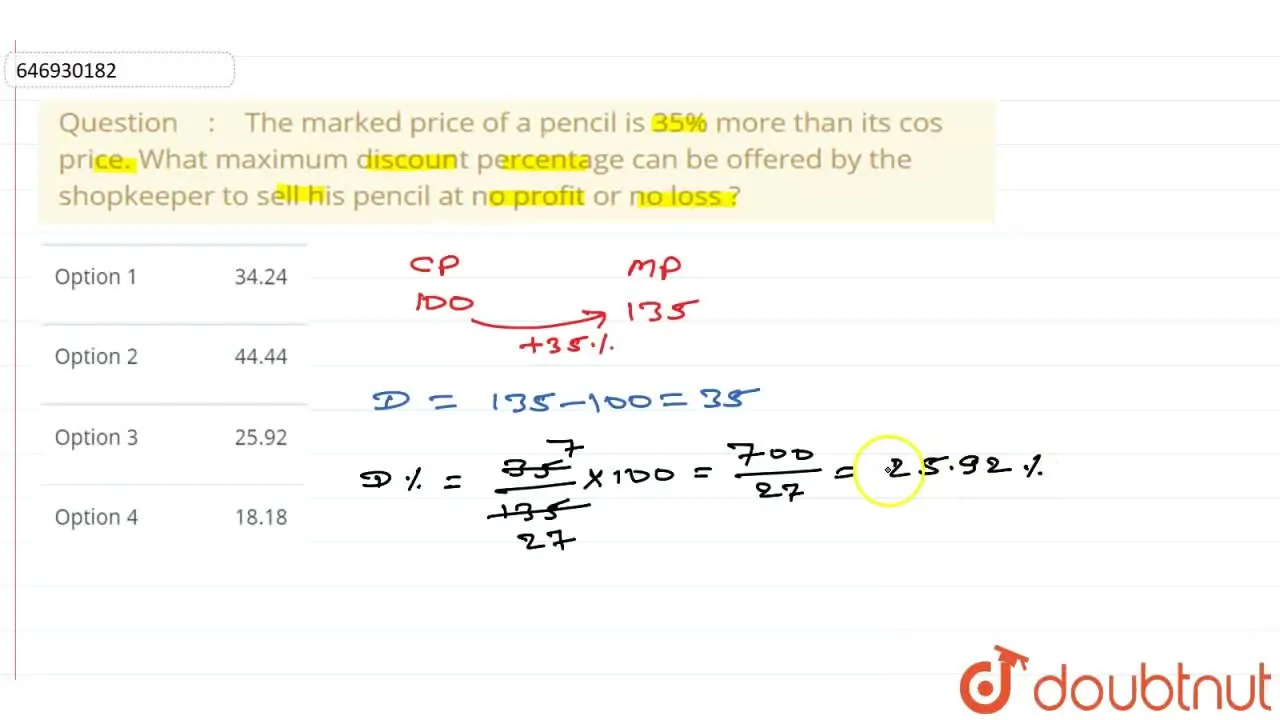 646930182
Question : The marked price of a pencil is 35% more than its cos
price. What maximum discount percentage can be offered by the
shopkeeper to sell his pencil at no profit or no loss ?
Option 1 34.24
Option 2 44.44
Option 3 25.92
Option 4 18.18
CP MP
100 135
+35%
D = 135-100=35
D% = 35/135 7/27 ×100 = 700/27 = 25.92%
doubtnut